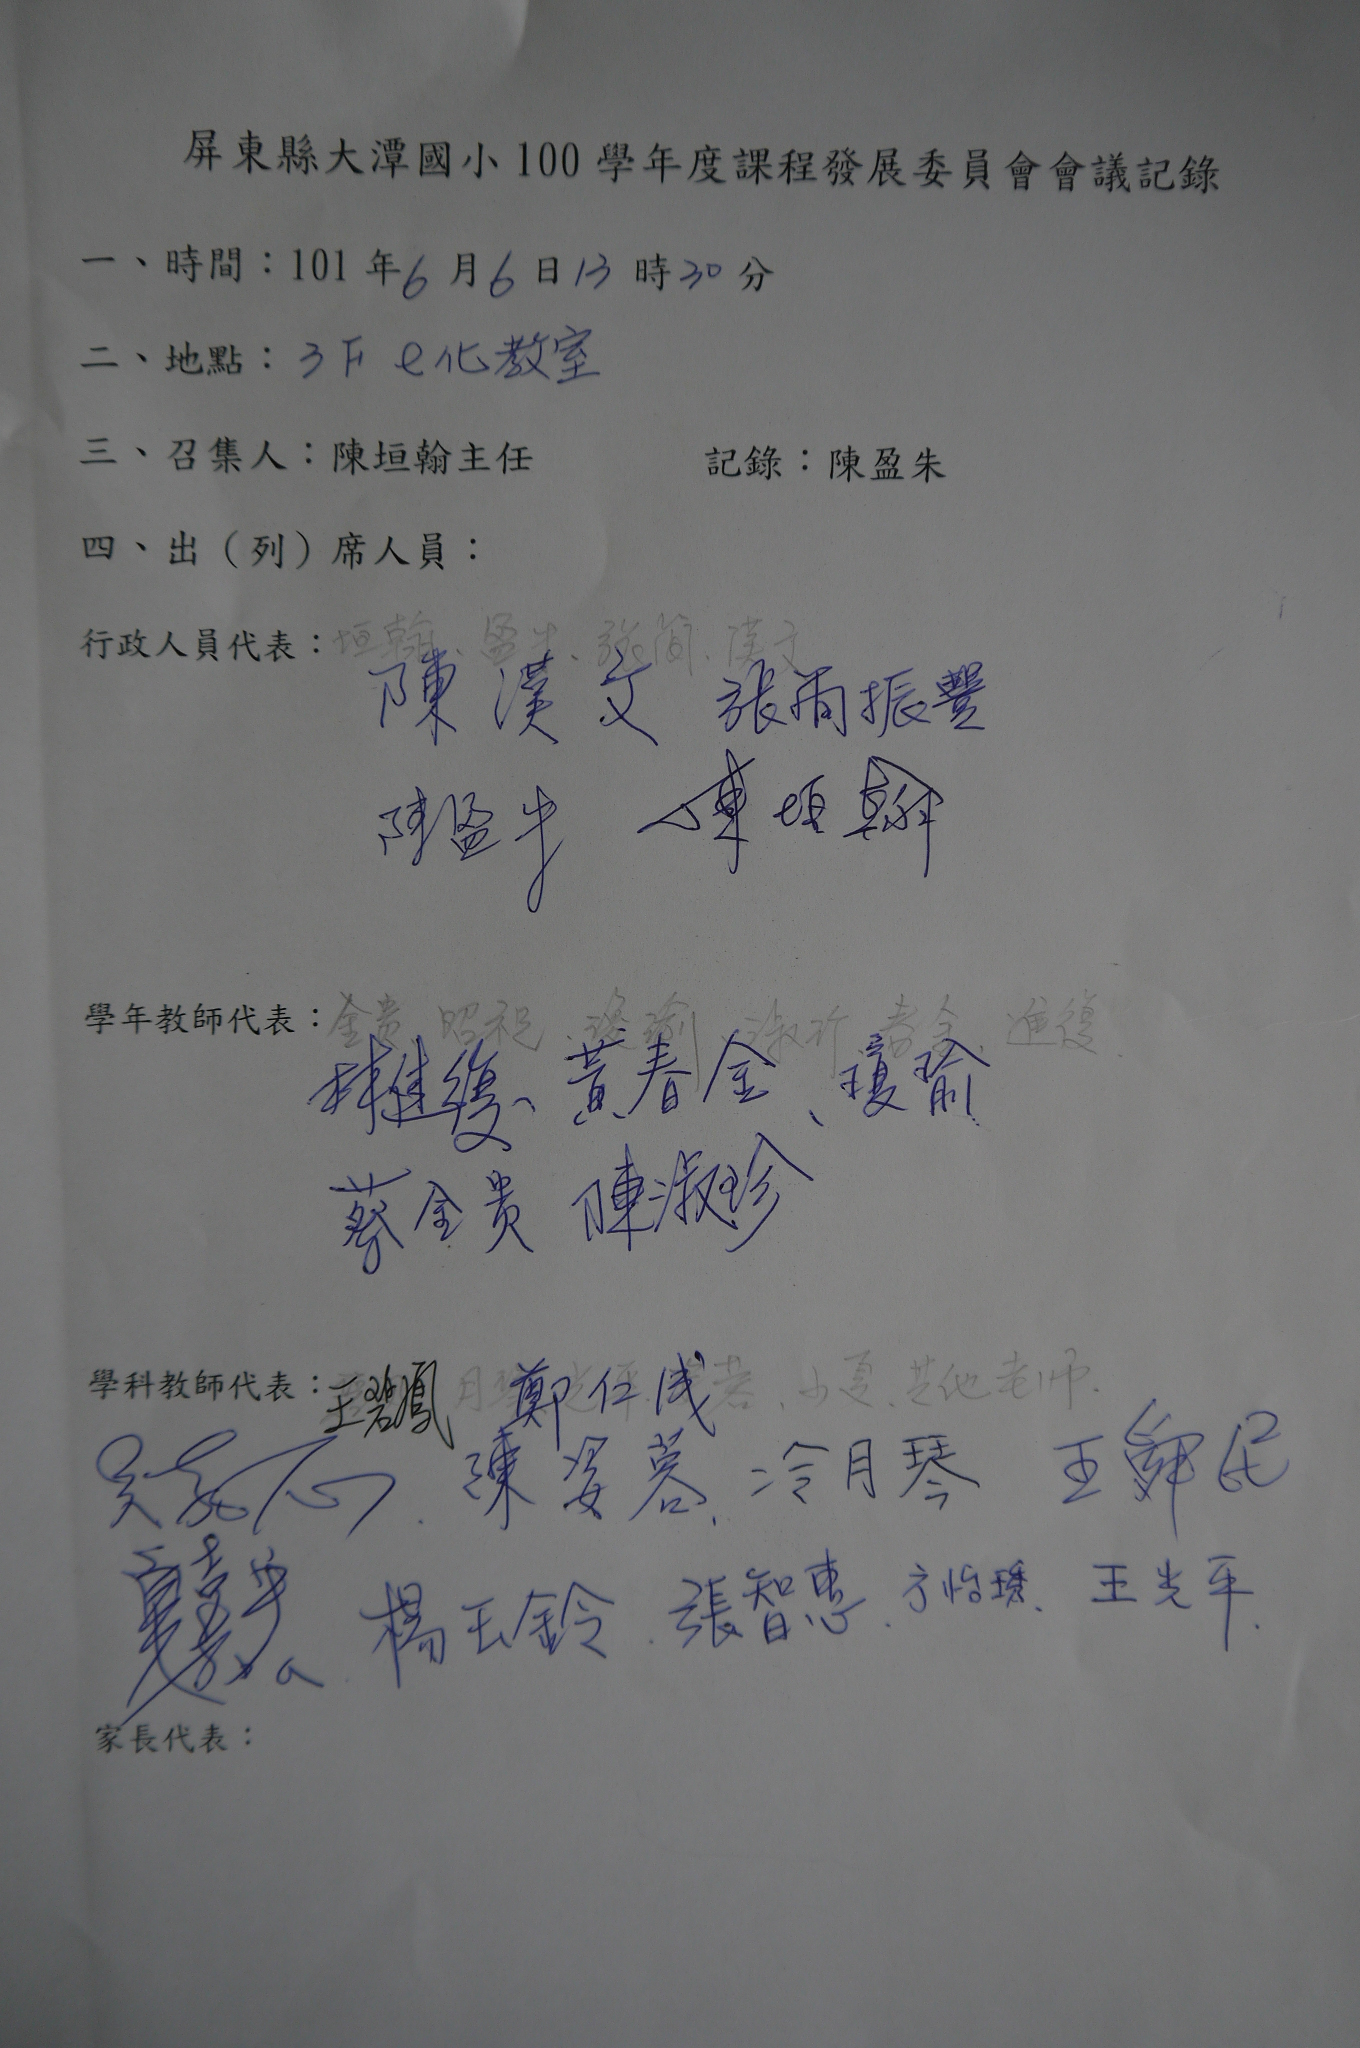 屏東縣大潭國小100學年度課程發展委員會會議記錄
一、時間：101年6月6日13時30分
二、地點：3F e化教室
三、召集人：陳垣翰主任 記錄：陳盈朱
四、出（列）席人員：
行政人員代表：垣翰、盈朱、張簡、漢文
陳漢文 張簡振豐
陳盈朱 陳垣翰
學年教師代表：金貴 昭祝、瓊瑜、淑珍 春金、進復
林進復、黃春金、瓊瑜
蔡金貴 陳淑珍
學科教師代表：王碧鳳 鄭仁成 小夏、其他老師
陳姿蓉、冷月琴 王舜民
楊玉鈴、張智惠、方怡 王光平
家長代表：